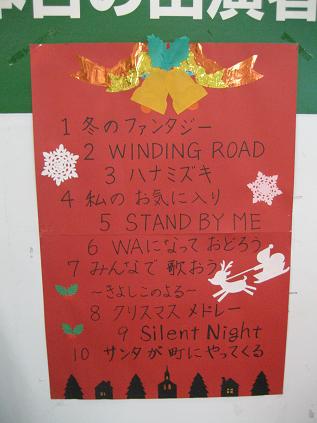 本日の出演者
1 冬のファンタジー
2 WINDING ROAD
3 ハナミズキ
4 私の お気に入り
5 STAND BY ME
6 WAになって おどろう
7 みんなで 歌おう
～きよしこのよる～
8 クリスマス メドレー
9 Silent Night
10 サンタが 町に やってくる